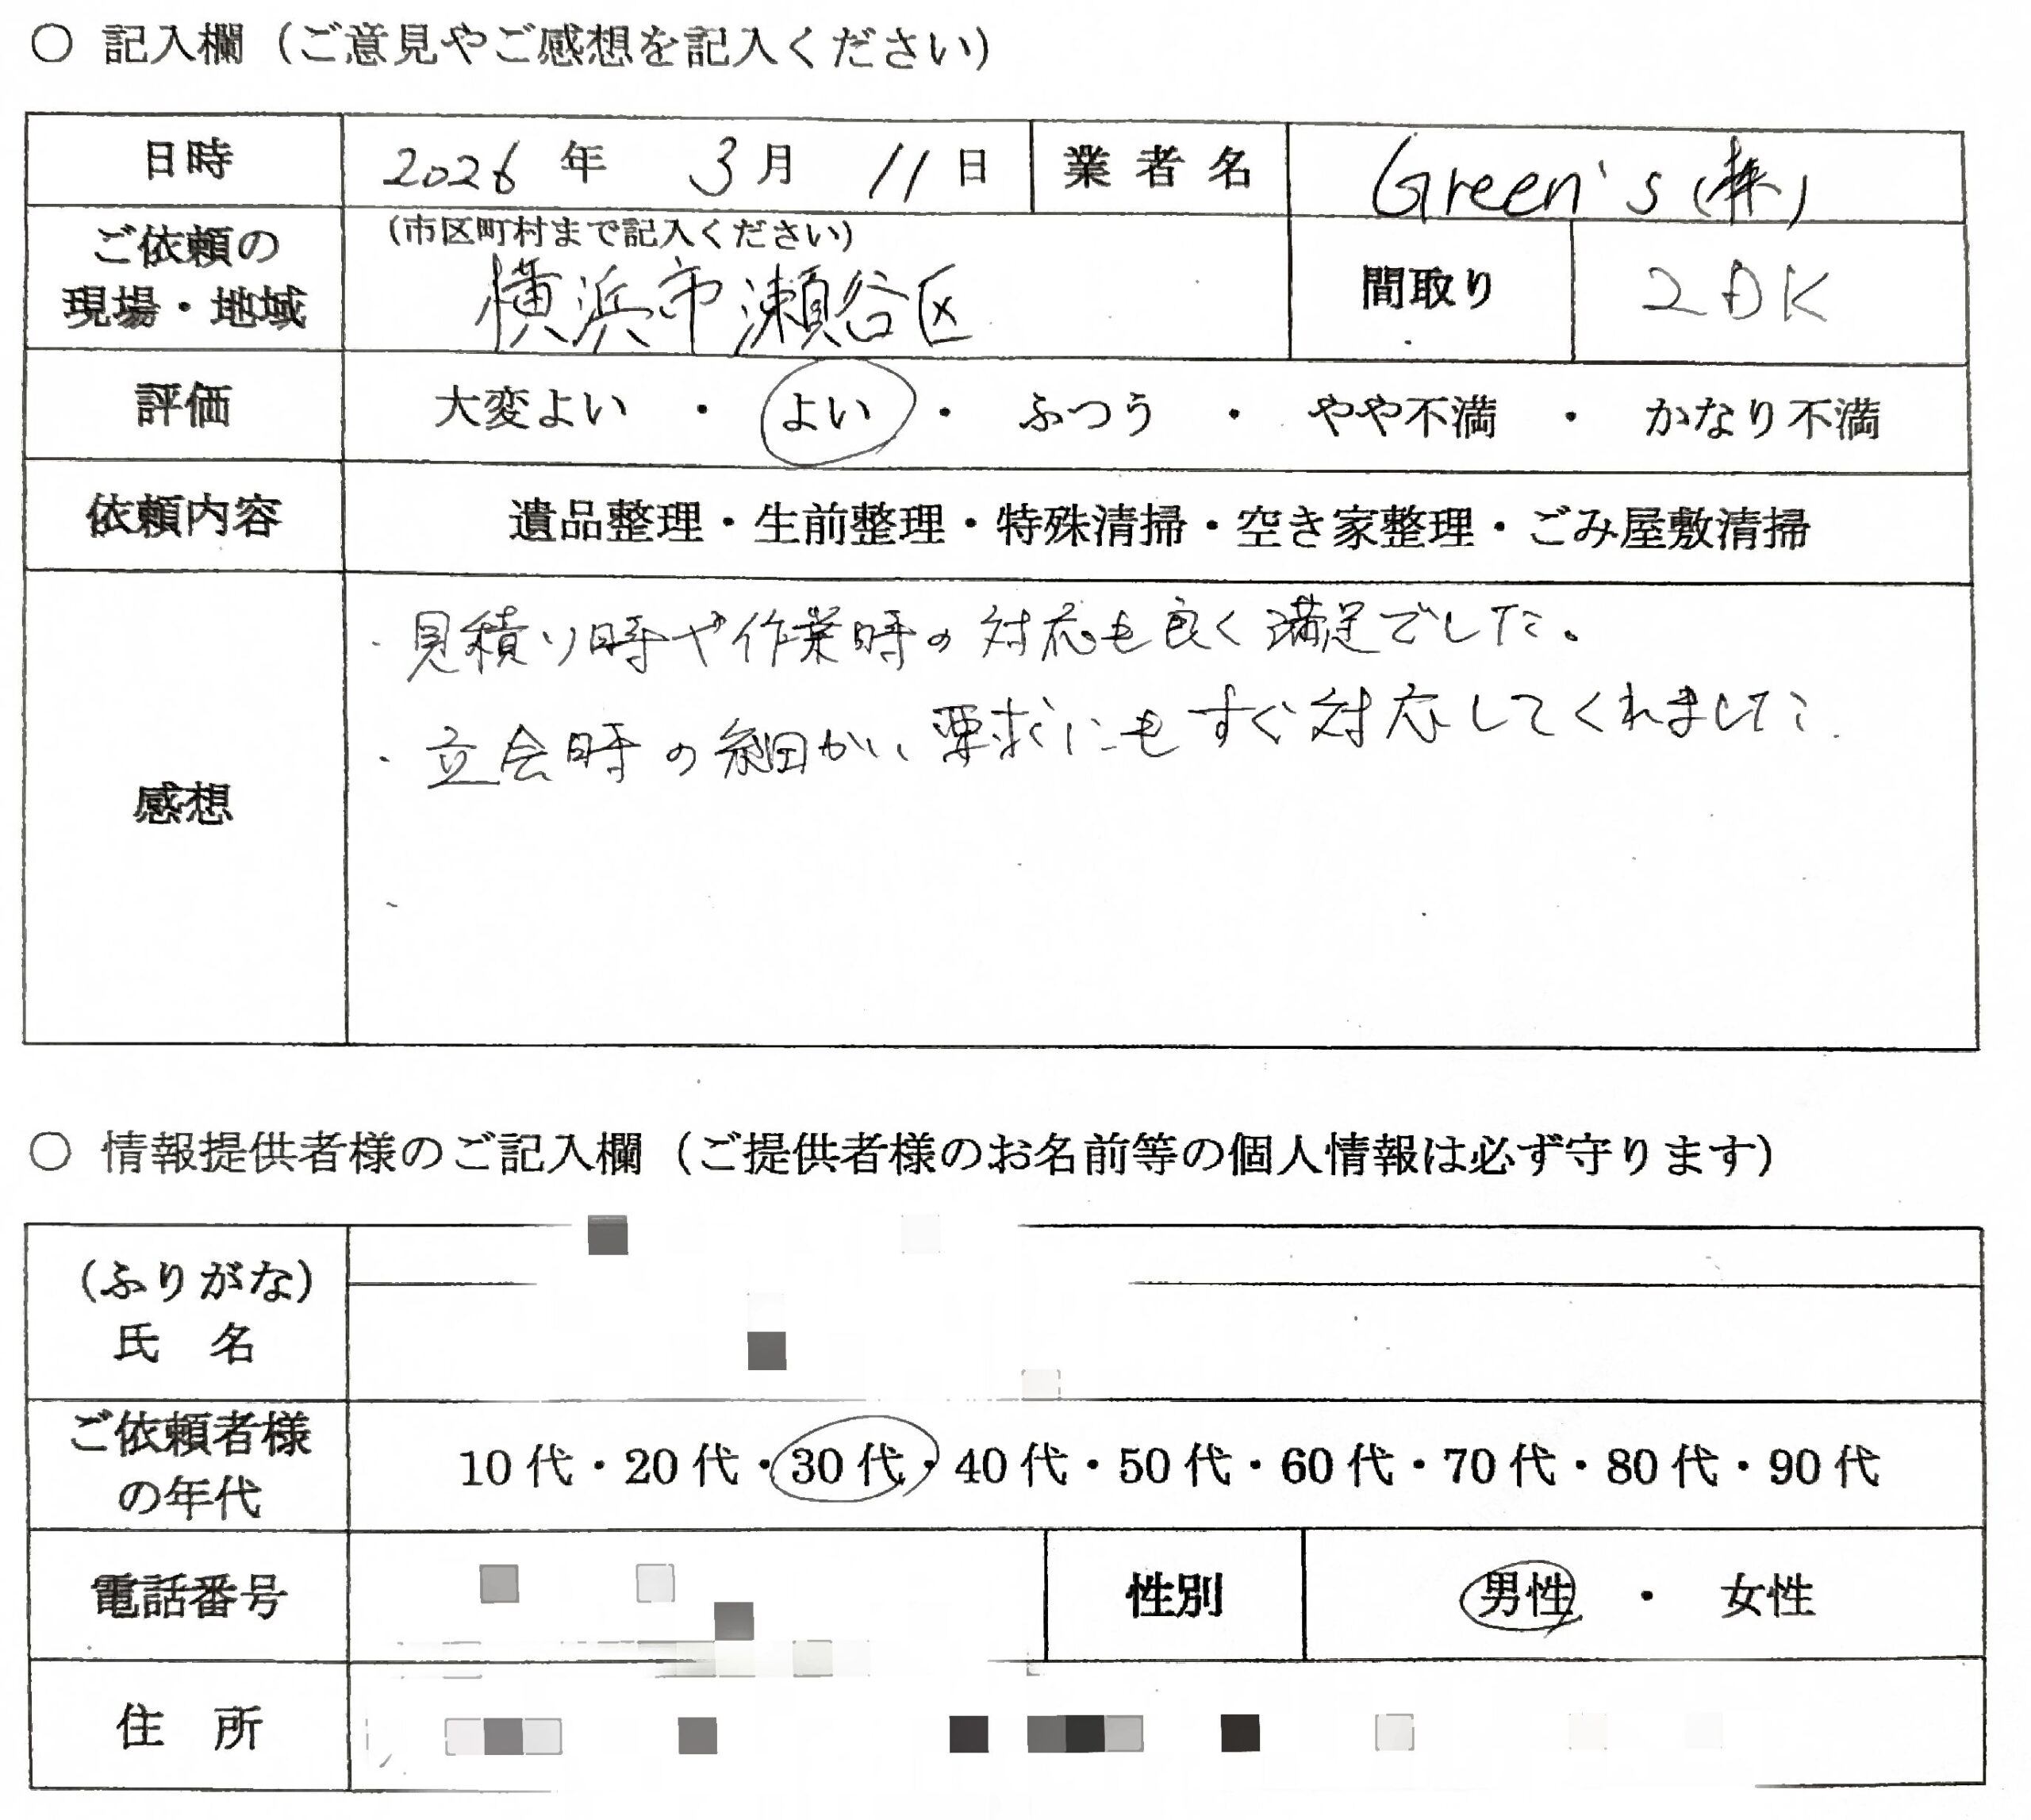 ○ 記入欄（ご意見やご感想を記入ください）
日時 2026 年 3 月 11 日 業者名 Green's (株)
ご依頼の現場・地域 (市区町村まで記入ください)
横浜市瀬谷区 間取り 2DK
評価 大変よい ・ よい ・ ふつう ・ やや不満 ・ かなり不満
依頼内容 遺品整理・生前整理・特殊清掃・空き家整理・ごみ屋敷清掃
感想
・見積り時や作業時の対応も良く満足でした。
・立会時の細かい要求にもすぐ対応してくれました
○ 情報提供者様のご記入欄（ご提供者様のお名前等の個人情報は必ず守ります）
(ふりがな)
氏 名
ご依頼者様の年代 10代・20代・30代・40代・50代・60代・70代・80代・90代
電話番号 性別 男性 ・ 女性
住 所